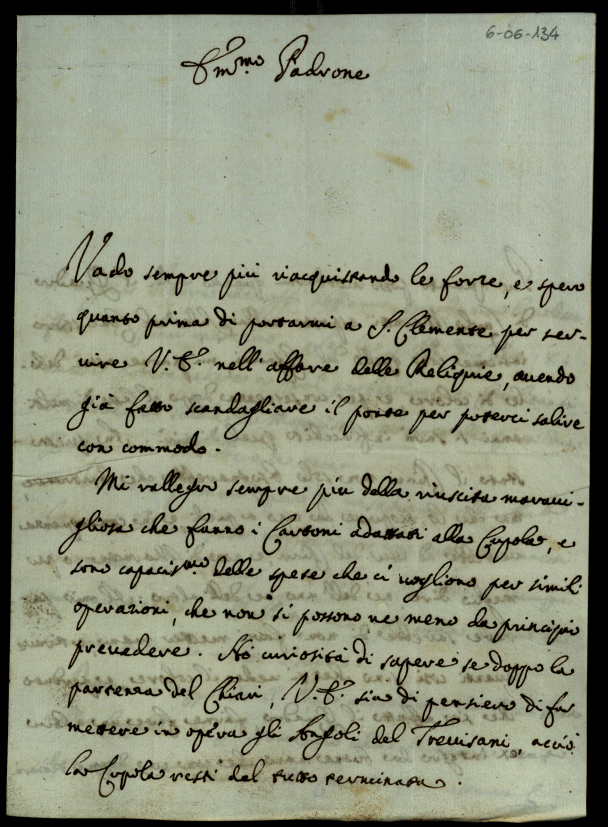 6-06-134
Em.mo Padrone
Vado sempre più riacquistando le forze, e spero
quanto prima di portarmi a S. Clemente per ser-
vire V. E. nell'affare delle Reliquie, avendo
già fatto scandagliare il ponte per poterci salire
con commodo.
Mi rallegro sempre più della riuscita maravi-
gliosa che fanno i Cartoni adattati alla Cupola, e
sono capacis.mo delle spese che ci vogliono per simili
operazioni, che non si possono ne meno da principio
prevedere. Hò curiosità di sapere se doppo la
partenza del Chiari, V. E. sia di pensiero di far
mettere in opera gli Angoli del Trevisani, acciò
la Cupola resti del tutto terminata.